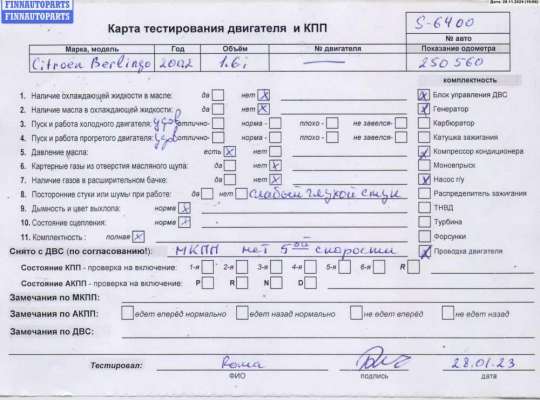 FINNAUTOPARTS
FINNAUTOPARTS
FINNAUTOPARTS
Дата: 28.11.2024
Карта тестирования двигателя и КПП
S-6400
№ авто
Марка, модель Год Объём № двигателя Показание одометра
Citroen Berlingo 2002 1.6i 250 560
комплектность
1. Наличие охлаждающей жидкости в масле: да нет x
2. Наличие масла в охлаждающей жидкости: да нет x
3. Пуск и работа холодного двигателя: удов отлично- норма - плохо - не завелся-
4. Пуск и работа прогретого двигателя: удов отлично- норма - плохо - не завелся-
5. Давление масла: есть x нет
6. Картерные газы из отверстия масляного щупа: да нет
7. Наличие газов в расширительном бачке: да нет x
8. Посторонние стуки или шумы при работе: да нет слабый глухой стук
9. Дымность и цвет выхлопа: норма x
10. Состояние сцепления: норма x
11. Комплектность : полная x
x Блок управления ДВС
x Генератор
Карбюратор
Катушка зажигания
x Компрессор кондиционера
Моновпрыск
x Насос г/у
Распределитель зажигания
ТНВД
Турбина
Форсунки
x Проводка двигателя
Снято с ДВС (по согласованию!): МКПП нет 5ой скорости
Состояние КПП - проверка на включение: 1-я 2-я 3-я 4-я 5-я 6-я R
Состояние АКПП - проверка на включение: P R N D
Замечания по МКПП:
Замечания по АКПП: едет вперёд нормально едет назад нормально не едет вперёд не едет назад
Замечания по ДВС:
Тестировал: Рома 28.01.23
ФИО подпись дата